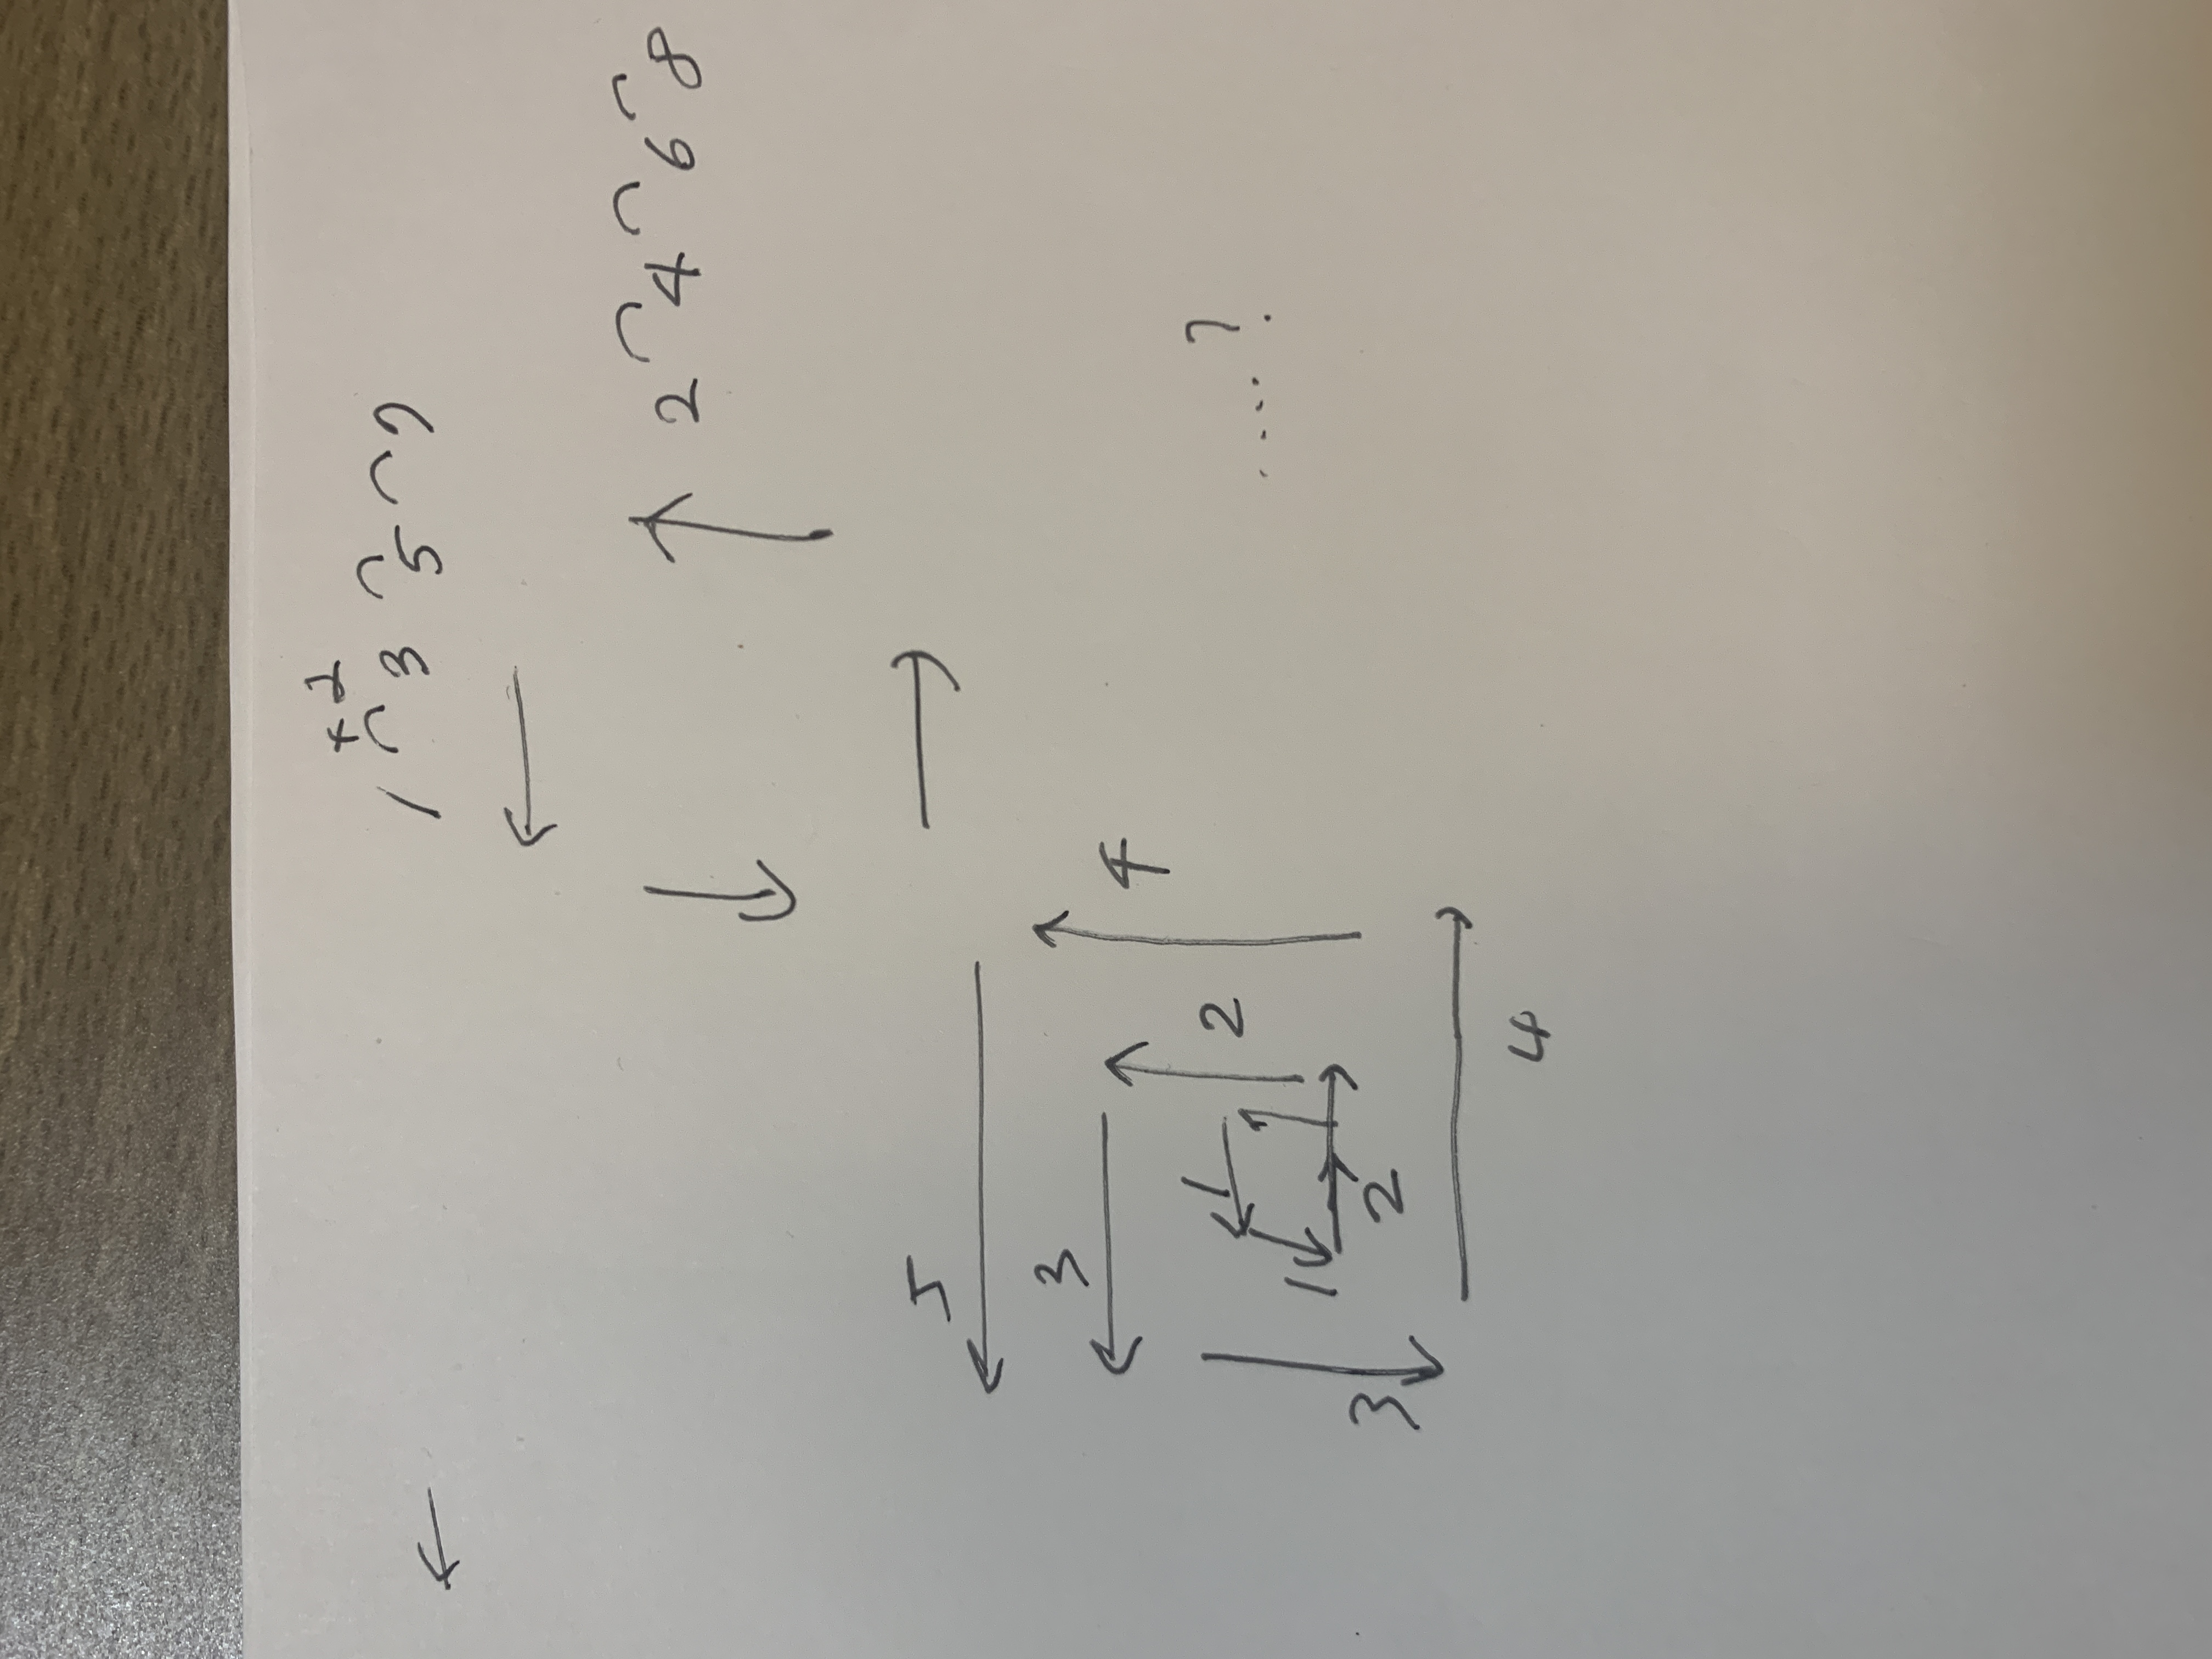 +2
1 3 5 7
2 4 6 8
5
3
4
1
2
1
3
2
4
.....?